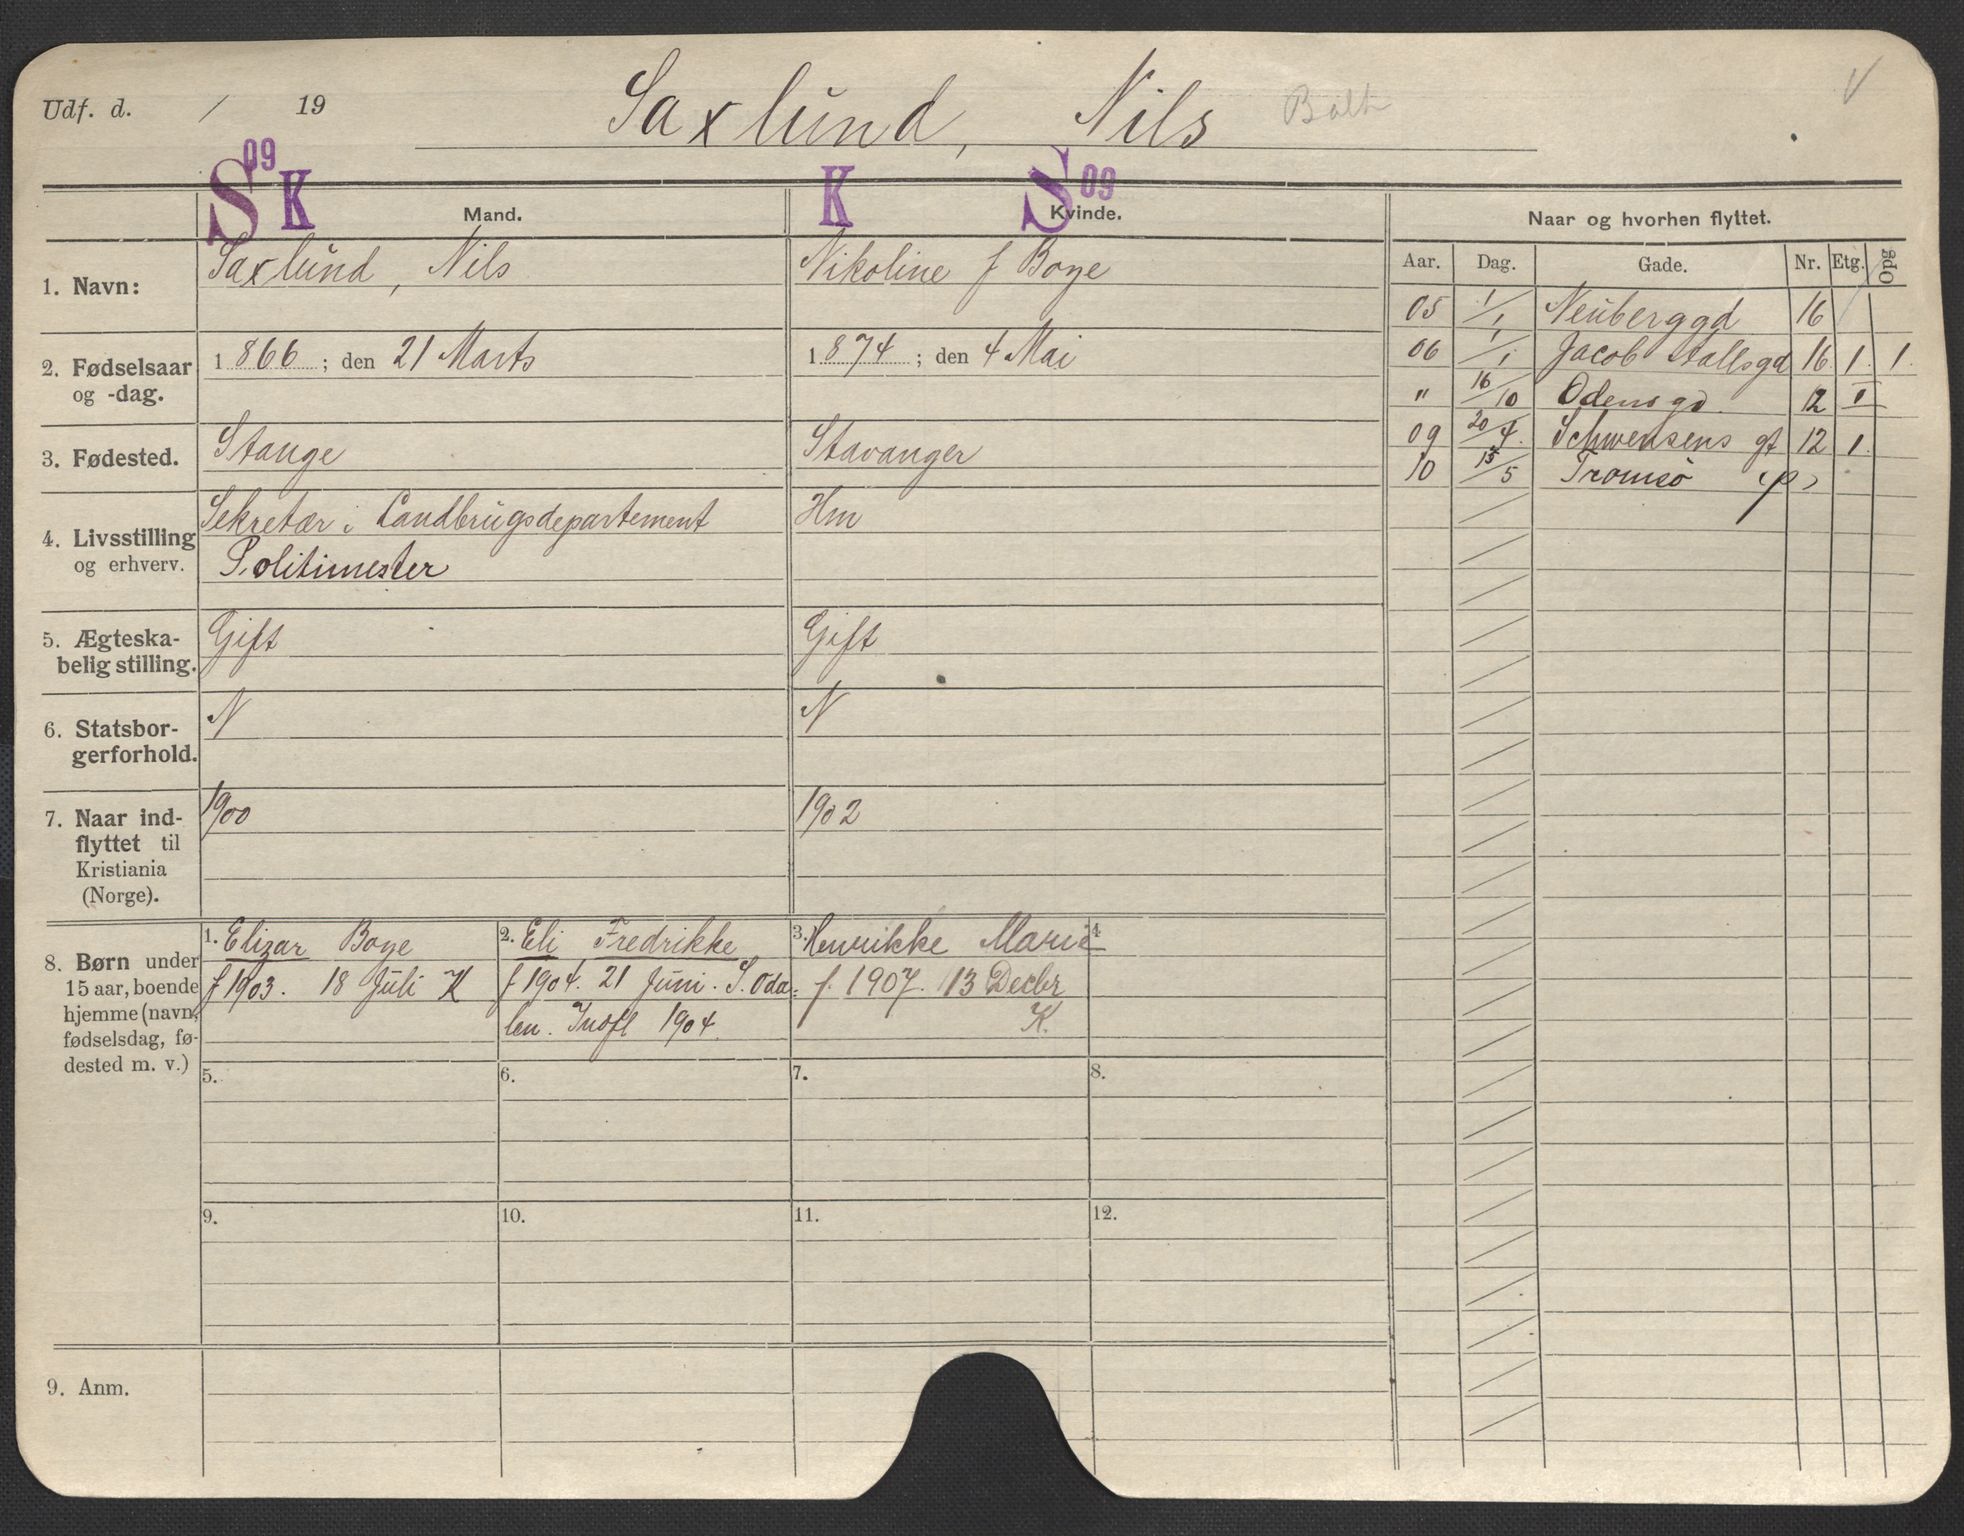 Udf. d. / 19
Saxlund, Nils
V
S 09 K
K S 09
Mand.
Kvinde.
Naar og hvorhen flyttet.
Aar. Dag. Gade. Nr. Etg. Opg
1. Navn: Saxlund, Nils
Nikoline f Boye
2. Fødselsaar og -dag. 1866; den 21 Marts
1874; den 4 Mai
3. Fødested. Stange
Stavanger
4. Livsstilling og erhverv. Sekretær i Landbrugsdepartement
Politimester
Hm
5. Ægteska-
belig stilling. Gift
Gift
6. Statsbor-
gerforhold. N
N
7. Naar ind-
flyttet til
Kristiania
(Norge). 1900
1902
8. Børn under
15 aar, boende
hjemme (navn,
fødselsdag, fø-
dested m. v.)
1. Elizar Boye
f 1903. 18 Juli K
2. Eli Fredrikke
f 1904. 21 Juni. S. Oda-
len. Indfl 1904.
3. Henrikke Marie
f. 1907. 13 Decbr
K.
4
5.
6.
7.
8.
9.
10.
11.
12.
9. Anm.
05 1/1 Neuberggd 16
06 1/1 Jacob Aallsgd 16 1. 1.
" 16/10 Odensgd. 12 I
09 20/4. Schwensens gt 12 1.
10 13/5 Tromsø (p)